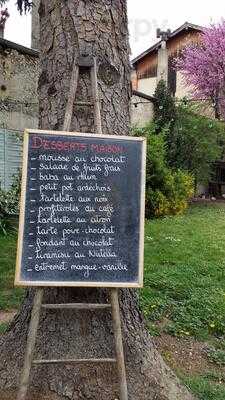 DESSERTS MAISON
- mousse au chocolat
- salade de fruits frais
- baba au rhum
- petit pot ardéchois
- tartelette aux noix
- profiteroles au café
- tartelette au citron
- tarte poire-chocolat
- fondant au chocolat
- tiramisu au Nutella
- entremet mangue-vanille